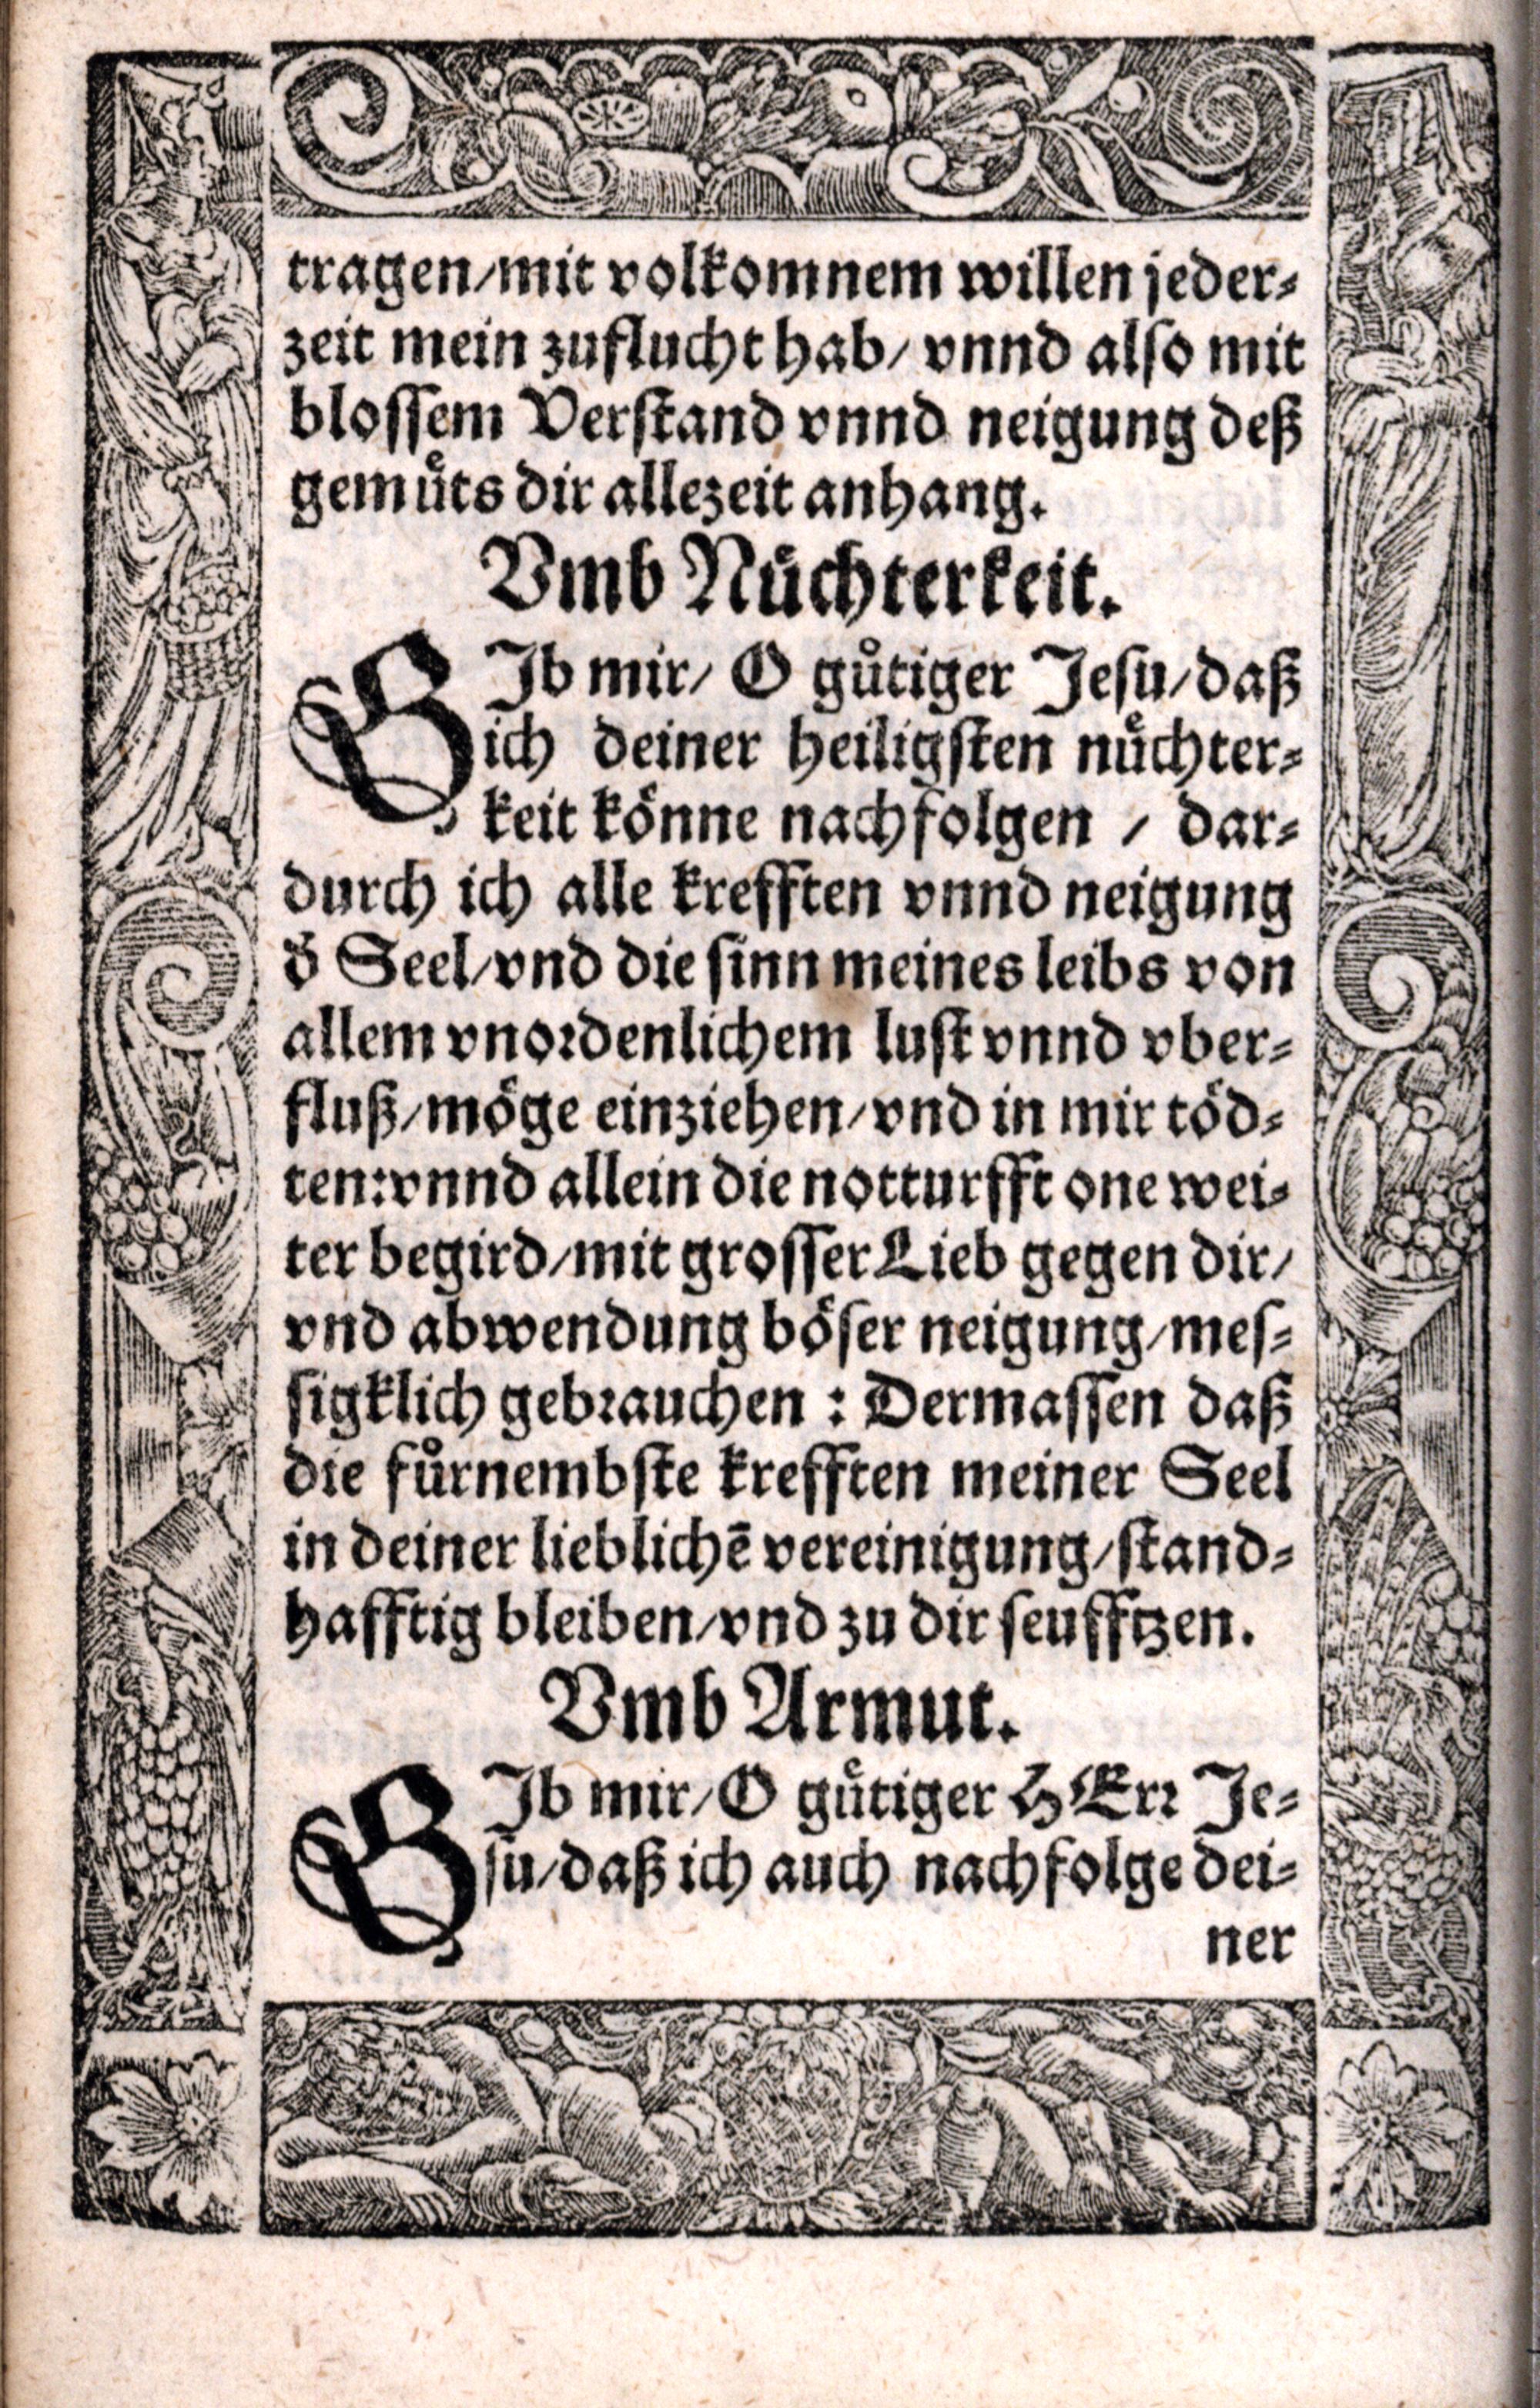 tragen/mit volkomnem willen jeder⸗
zeit mein zuflucht hab/ vnnd also mit
blossem Verstand vnnd neigung deß
gemuͤts dir allezeit anhang.
Vmb Nuͤchterkeit.
GIb mir/ O guͤtiger Jesu/daß
ich deiner heiligsten nuͤchter⸗
keit koͤnne nachfolgen / dar⸗
durch ich alle krefften vnnd neigung
đ Seel/vnd die sinn meines leibs von
allem vnordenlichem lust vnnd vber⸗
fluß/moͤge einziehen/vnd in mir toͤd⸗
ten:vnnd allein die notturfft one wei⸗
ter begird/mit grosser Lieb gegen dir/
vnd abwendung boͤser neigung/mes⸗
sigklich gebrauchen : Dermassen daß
die fuͤrnembste krefften meiner Seel
in deiner lieblichē vereinigung/stand⸗
hafftig bleiben/vnd zu dir seufftzen.
Vmb Armut.
GIb mir/O guͤtiger HErr Je⸗
su/daß ich auch nachfolge dei⸗
ner